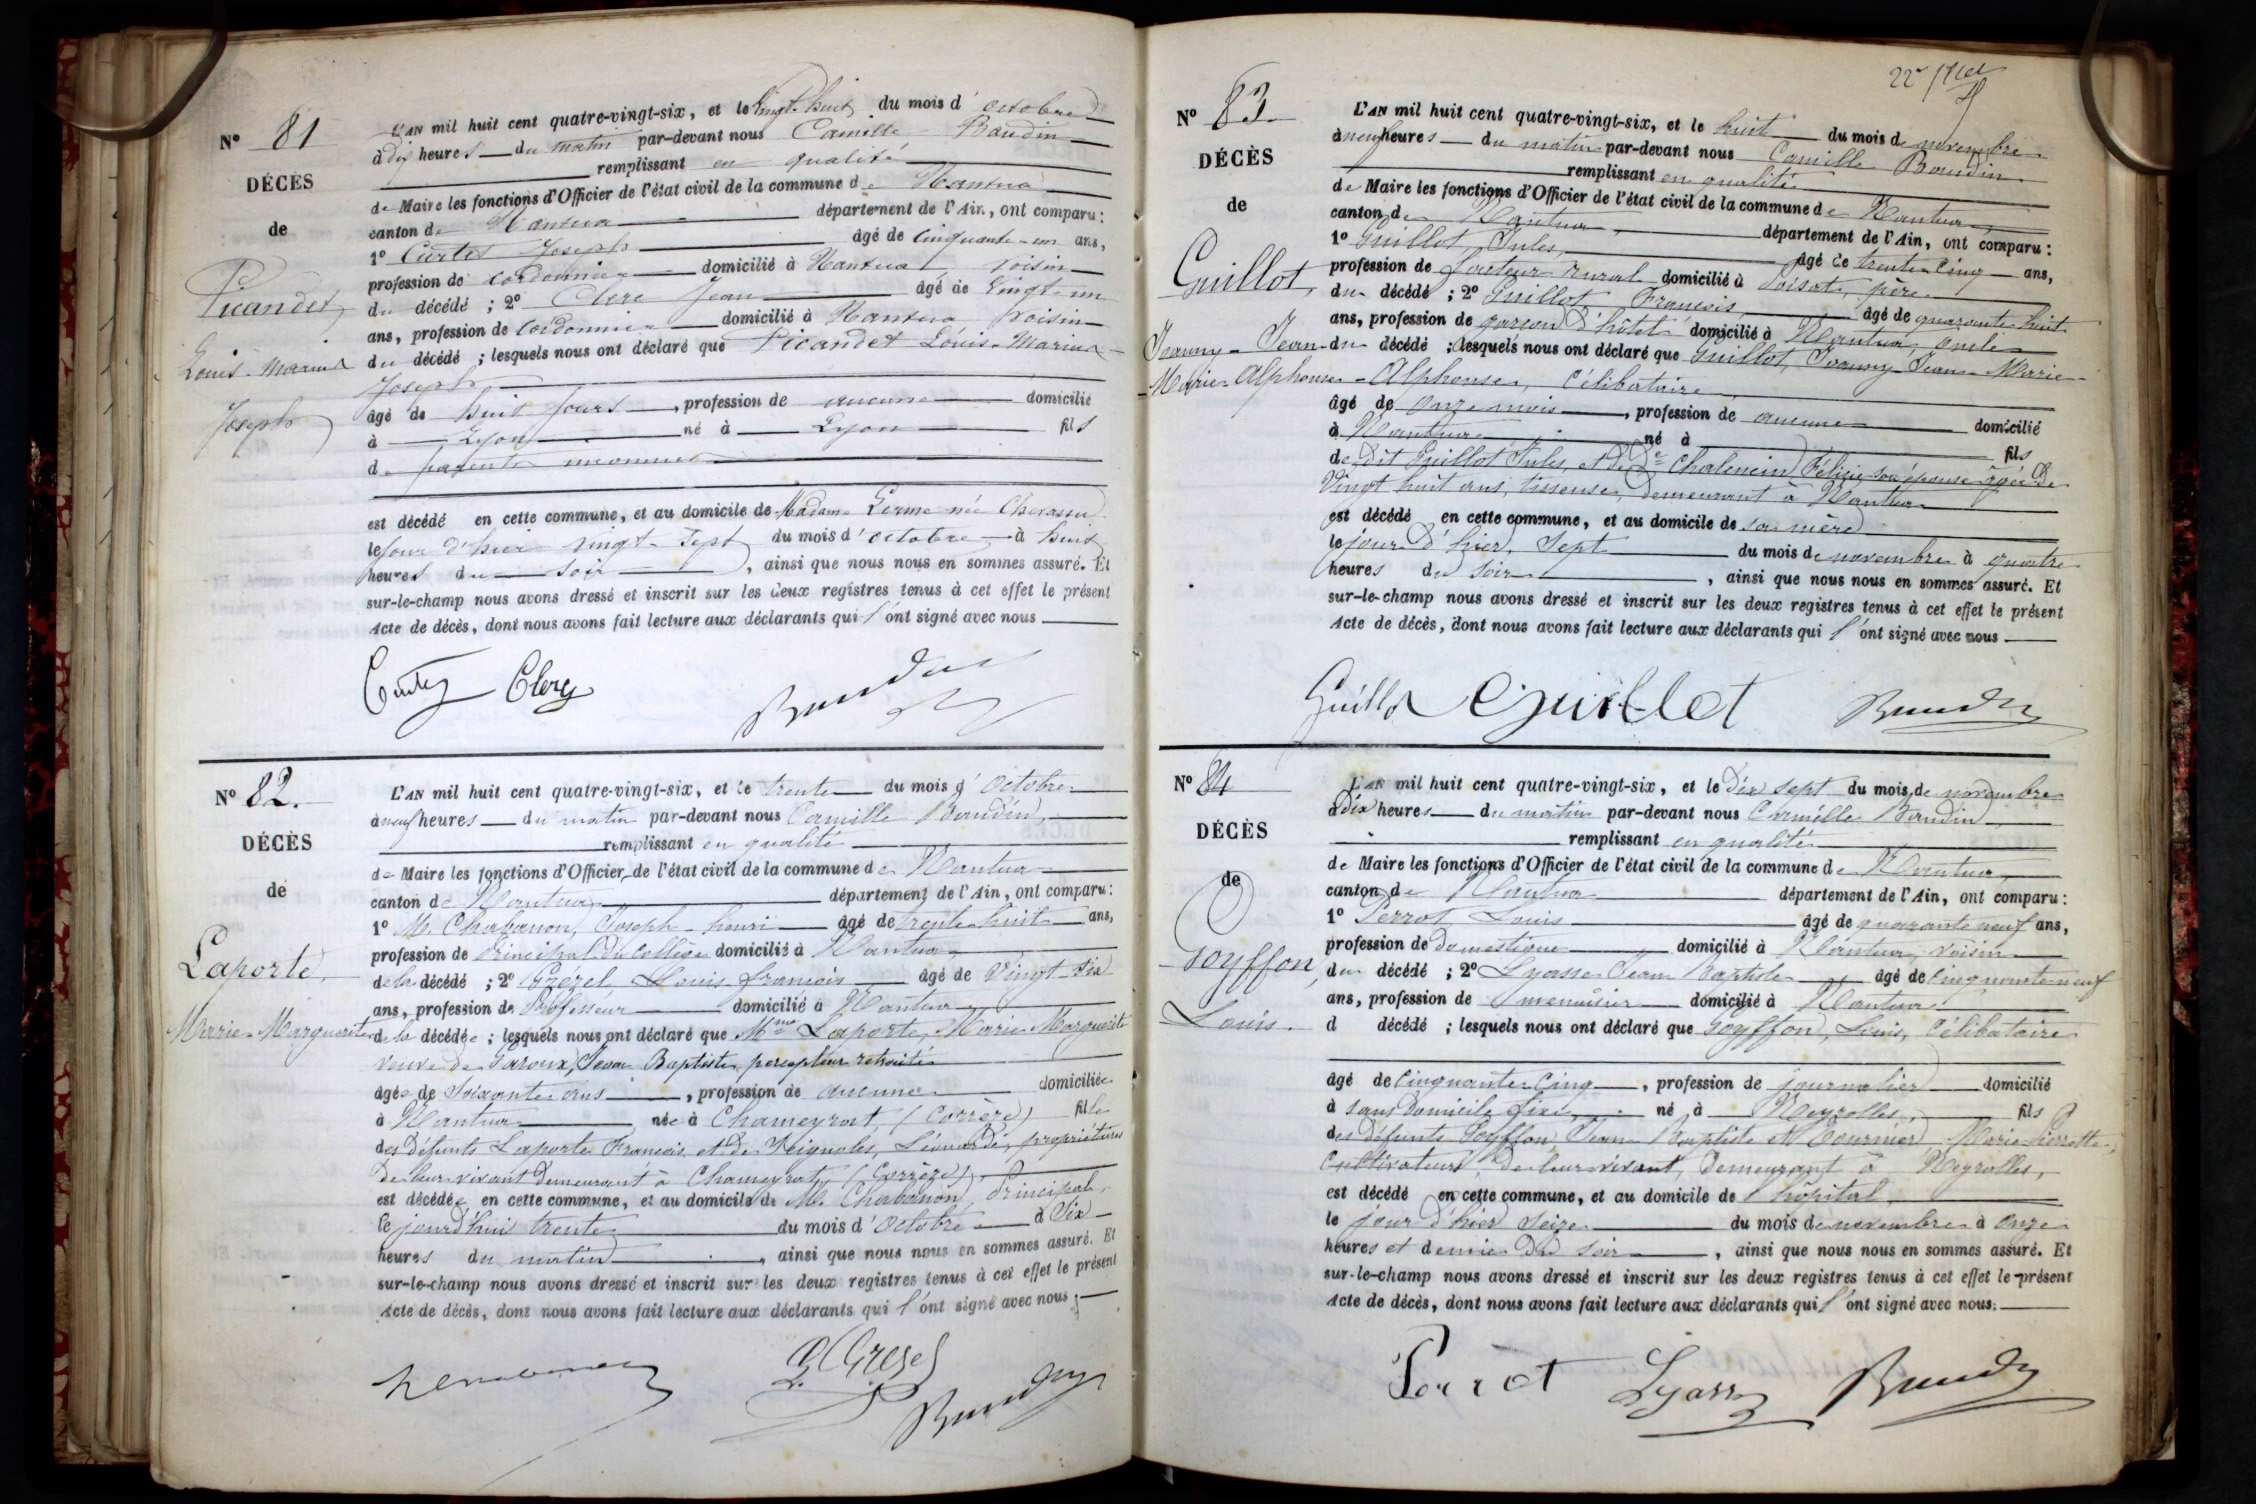 Nº 81
DÉCÈS
de
Picandet
Louis-Marius
Joseph
L'AN mil huit cent quatre-vingt-six, et le Vingt-huit du mois d'octobre
à dix heures du matin par-devant nous Camille Baudin
remplissant en qualité
de Maire les fonctions d'Officier de l'état civil de la commune de Nantua
canton de Nantua département de l'Ain, ont comparu :
1º Curtet Joseph âgé de Cinquante-un ans,
profession de cordonnier domicilié à Nantua voisin
du décédé ; 2º Clerc Jean âgé de Vingt-un
ans, profession de Cordonnier domicilié à Nantua voisin
du décédé ; lesquels nous ont déclaré que Picandet Louis-Marius
Joseph
âgé de huit jours, profession de aucune domicilié
à Lyon né à Lyon fils
de parents inconnus
est décédé en cette commune, et au domicile de Madame née
le jour d'hier vingt-sept du mois d'octobre à huit
heures du soir, ainsi que nous nous en sommes assuré. Et
sur-le-champ nous avons dressé et inscrit sur les deux registres tenus à cet effet le présent
Acte de décès, dont nous avons fait lecture aux déclarants qui l'ont signé avec nous
Clerc Baudin
Nº 82.
DÉCÈS
de
Laporte
Marie-Marguerite
L'AN mil huit cent quatre-vingt-six, et le trente du mois d'Octobre
à neuf heures du matin par-devant nous Camille Baudin,
remplissant en qualité
de Maire les fonctions d'Officier de l'état civil de la commune de Nantua
canton de Nantua département de l'Ain, ont comparu :
1º Mr. Chabanon, Joseph-henri âgé de trente huit ans,
profession de Principal du Collège domicilié à Nantua
de la décédé ; 2º Grézel Louis François âgé de Vingt six
ans, profession de Professeur domicilié à Nantua
de la décédée ; lesquels nous ont déclaré que Mme Laporte, Marie-Marguerite
veuve de Jean Baptiste percepteur retraité
âgée de Soixante ans, profession de aucune domiciliée
à Nantua née à Chameyrat, (Corrèze) fille
des défunts Laporte François, et de Léonarde, propriétaires
de leur vivant demeurant à Chameyrat (Corrèze)
est décédée en cette commune, et au domicile de Mr. Chabanon, Principal,
le jourd'huis trente du mois d'Octobre à Six
heures du matin, ainsi que nous nous en sommes assuré. Et
sur-le-champ nous avons dressé et inscrit sur les deux registres tenus à cet effet le présent
Acte de décès, dont nous avons fait lecture aux déclarants qui l'ont signé avec nous
Grezel
Baudin
Nº 83
DÉCÈS
de
Guillot,
Joanny-Jean
Marie-Alphonse
L'AN mil huit cent quatre-vingt-six, et le huit du mois de novembre
à neuf heures du matin par-devant nous Camille Baudin
remplissant en qualité
de Maire les fonctions d'Officier de l'état civil de la commune de Nantua,
canton de Nantua, département de l'Ain, ont comparu :
1º Guillot, Jules, âgé de trente cinq ans,
profession de facteur rural domicilié à père
du décédé ; 2º Guillot, François, âgé de quarante huit
ans, profession de garçon d'hôtel domicilié à Nantua, oncle
du décédé ; lesquels nous ont déclaré que Guillot, Joanny-Jean-Marie-
Alphonse, Célibataire
âgé de onze mois, profession de aucune domicilié
à Nantua né à fils
de dit Guillot Jules, et de De Félicie son épouse âgée de
Vingt huit ans, tisseuse, demeurant à Nantua
est décédé en cette commune, et au domicile de sa mère
le jour d'hier, Sept du mois de novembre à quatre
heures du soir, ainsi que nous nous en sommes assuré. Et
sur-le-champ nous avons dressé et inscrit sur les deux registres tenus à cet effet le présent
Acte de décès, dont nous avons fait lecture aux déclarants qui l'ont signé avec nous
Guillot Guillot Baudin
Nº 84
DÉCÈS
de
Goyffon,
Louis.
L'AN mil huit cent quatre-vingt-six, et le Dix sept du mois de novembre
à Dix heures du matin par-devant nous Camille Baudin
remplissant en qualité
de Maire les fonctions d'Officier de l'état civil de la commune de Nantua,
canton de Nantua département de l'Ain, ont comparu :
1º Perrot Louis âgé de quarante neuf ans,
profession de domestique domicilié à Nantua, voisin
du décédé ; 2º Lyasse Jean Baptiste âgé de Cinquante-neuf
ans, profession de menuisier domicilié à Nantua
d décédé ; lesquels nous ont déclaré que Goyffon, Louis, Célibataire
âgé de Cinquante-Cinq, profession de journalier domicilié
à sans Domicile fixe, né à Neyrolles, fils
des défunts Goyffon Jean Baptiste et Marie-Pierrette,
Cultivateurs, de leur vivant, Demeurant à Neyrolles,
est décédé en cette commune, et au domicile de l'hôpital,
le jour d'hier Seize du mois de novembre à Onze
heures et demie du soir, ainsi que nous nous en sommes assuré. Et
sur-le-champ nous avons dressé et inscrit sur les deux registres tenus à cet effet le présent
Acte de décès, dont nous avons fait lecture aux déclarants qui l'ont signé avec nous.
Perrot Lyasse Baudin